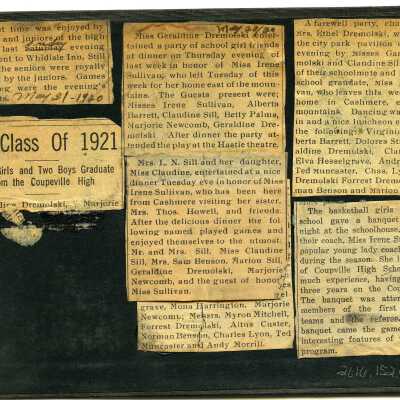 ot time was enjoyed by
and juniors of the high
last Saturday evening
Sunday
ent to Whidisle Inn. Still
e seniors were royally
by the juniors. Games
ng were the evening's
May 21-1920
Class Of 1921
Girls and Two Boys Graduate
om the Coupeville High
Dremolski, Marjorie
Miss Geraldine Dremolski enter-
tained a party of school girl friends
at dinner on Thursday evening of
last week in honor of Miss Irene
Sullivan, who left Tuesday of this
week for her home east of the moun-
tains. The Guests present were:
Misses Irene Sullivan, Alberta
Barrett, Claudine Sill, Betty Palms,
Marjorie Newcomb, Geraldine Dre-
molski. After dinner the party at-
tended the play at the Hastie theatre.
Mrs. L. N. Sill and her daughter,
Miss Claudine, entertained at a nice
dinner Tuesday eve in honor of Miss
Irene Sullivan, who has been here
from Cashmere visiting her sister,
Mrs. Thos. Howell, and friends.
After the delicious dinner the fol
lowing named played games and
enjoyed themselves to the utmost:
Mr. and Mrs. Sill, Miss Claudine
Sill, Mrs. Sam Benson, Marion Sill,
Geraldine Dremolski, Marjorie
Newcomb, and the guest of honor
Miss Sullivan.
grave, Mona Harrington, Marjorie
Newcomb, Messrs. Myron Mitchell,
Forrest Dremolski, Altus Custer,
Norman Benson, Charles Lyon, Ted
Muncaster and Andy Morrill.
A farewell party, chap
Mrs. Ethel Dremolski, w
the city park pavilion
evening by Misses Gera
molski and Claudine Sill
of their schoolmate and
school graduate, Miss
van, who leaves this wee
home in Cashmere, e
mountains. Dancing wa
in and a nice luncheon e
the following: Virginia
berta Barrett, Dolores S
aldine Dremolski, Cla
Elva Hesselgrave, Andre
Ted Muncaster, Chas. L
Dremolski Forrest Dremo
man Benson and Marion
The basketball girls
school gave a banquet
night at the schoolhouse,
their coach, Miss Irene S
popular young lady coach
during the season. She
of Coupville High Scho
much experience, having
three years on the Cou
The banquet was atten
members of the first
teams and the referee.
banquet came the game
interesting features of
program.